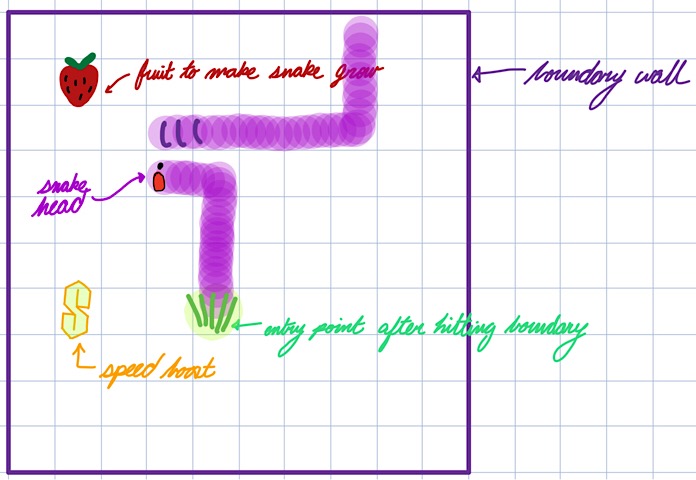 fruit to make snake grow
boundary wall
snake
head
S
entry point after hitting boundary
speed boost